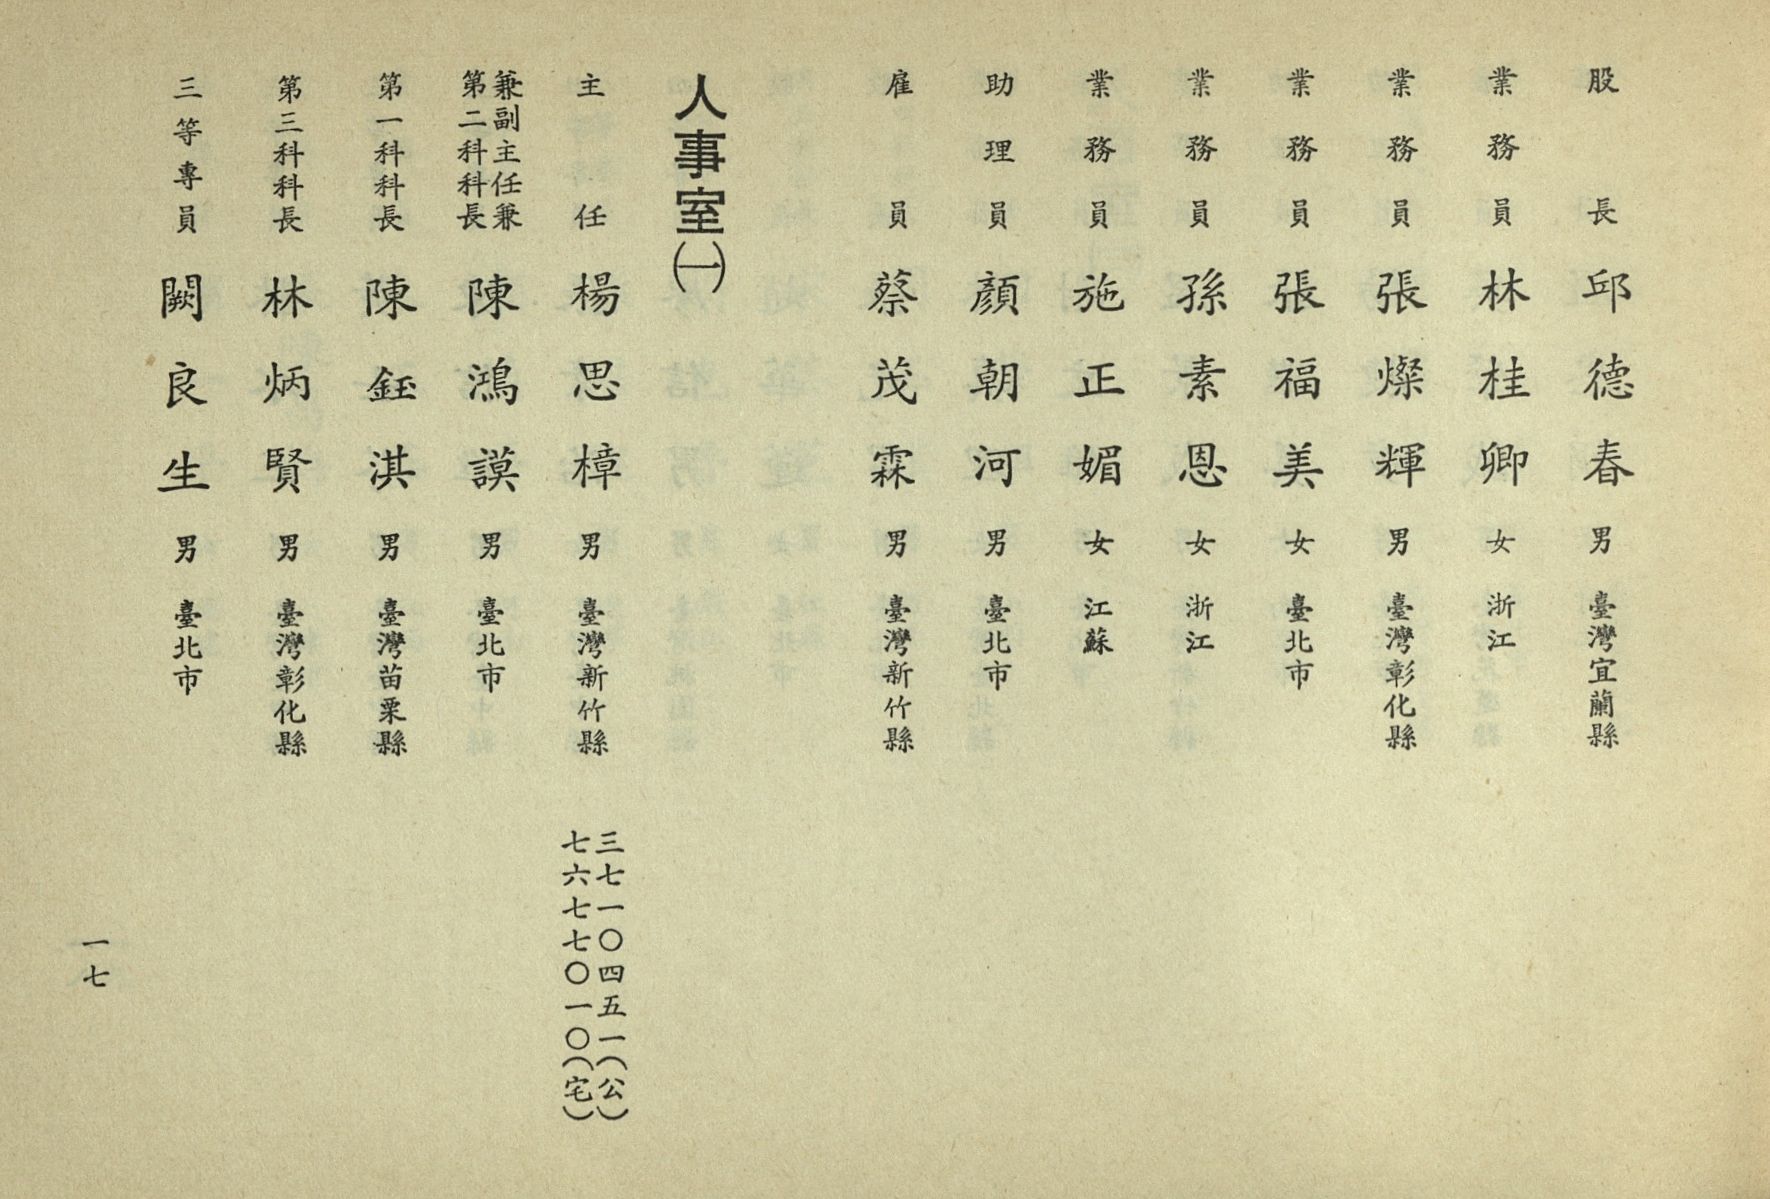 股長 邱德春 男 臺灣宜蘭縣
業務員 林桂卿 女 浙江
業務員 張燦輝 男 臺灣彰化縣
業務員 張福美 女 臺北市
業務員 孫素恩 女 浙江
業務員 施正媚 女 江蘇
助理員 顏朝河 男 臺北市
雇員 蔡茂霖 男 臺灣新竹縣
人事室㈠
主任 楊思樟 男 臺灣新竹縣 三七一〇四五一(公)
七六七七〇一〇(宅)
兼副主任兼
第二科科長 陳鴻謨 男 臺北市
第一科科長 陳鈺淇 男 臺灣苗栗縣
第三科科長 林炳賢 男 臺灣彰化縣
三等專員 闕良生 男 臺北市
一七